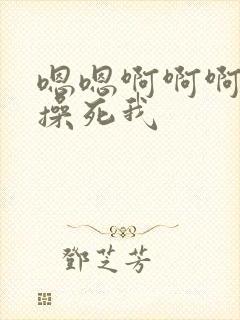 嗯嗯啊啊啊
操死我
鄧芝芳